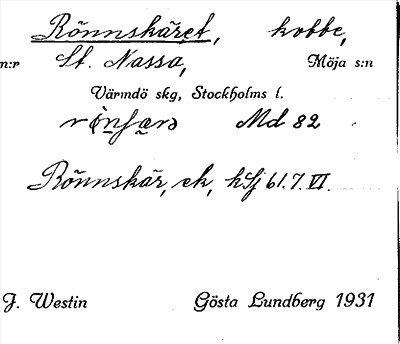 Rönnskäret, kobbe,
n:r St. Nassa, Möja s:n
Värmdö skg, Stockholms l.
Md 82
Rönnskär, ek, hSj 61.7.VI.
J. Westin Gösta Lundberg 1931